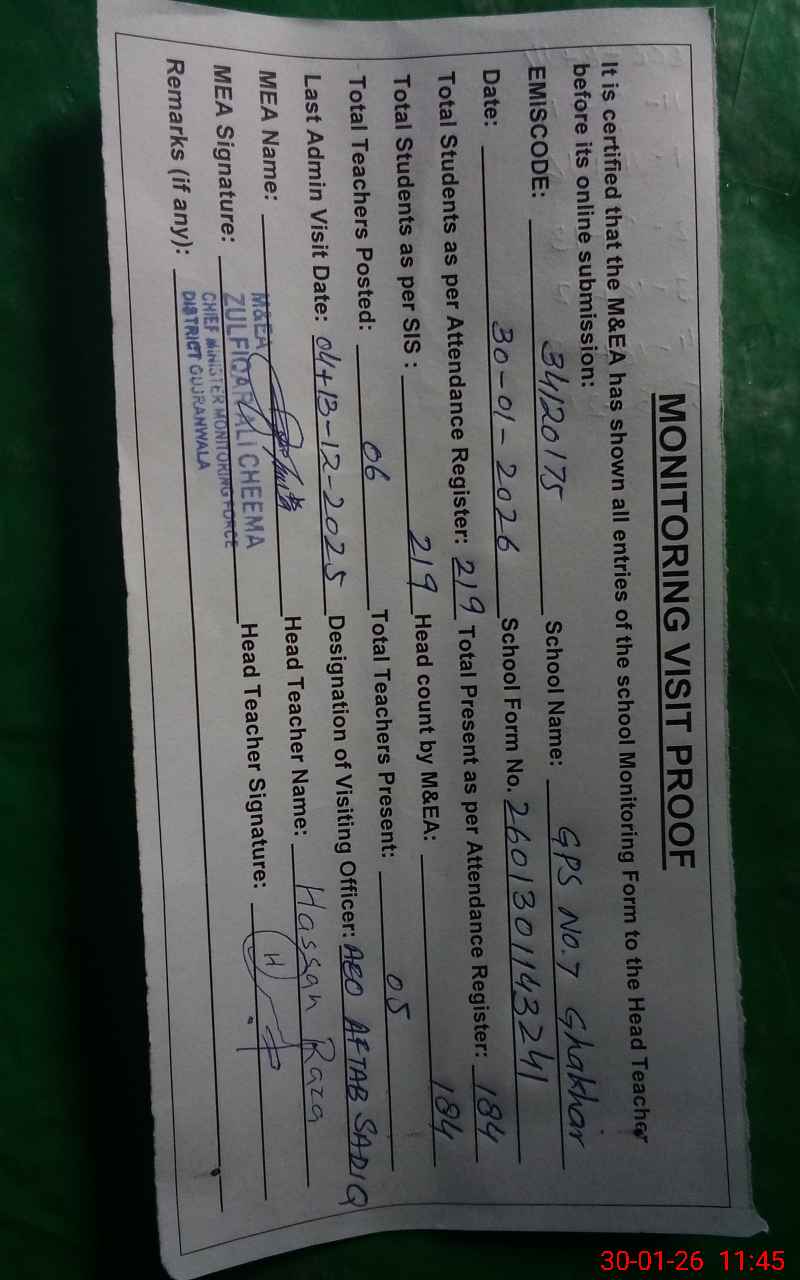 MONITORING VISIT PROOF
It is certified that the M&EA has shown all entries of the school Monitoring Form to the Head Teacher
before its online submission:
EMISCODE: 34120175 School Name: GPS No.7 Ghakhar
Date: 30-01-2026 School Form No. 2601301143241
Total Students as per Attendance Register: 219 Total Present as per Attendance Register: 184
Total Students as per SIS : 219 Head count by M&EA: 184
Total Teachers Posted: 06 Total Teachers Present: 05
Last Admin Visit Date: 04+13-12-2025 Designation of Visiting Officer: AEO AFTAB SADIQ
MEA Name: Head Teacher Name: Hassan Raza
MEA Signature: Head Teacher Signature: H
Remarks (if any):
M&EA
ZULFIQAR ALI CHEEMA
CHIEF MINISTER MONITORING FORCE
DISTRICT GUJRANWALA
30-01-26 11:45